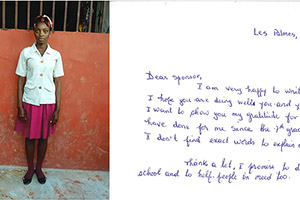 Les Palmes,
Dear Sponsor,
I am very happy to writ
I hope you are doing wells you and y
I want to show you my gratitude for
have done for me sence the 1st grad
I don't find exact words to explain m
Thank a lot, I promise to d
school and to help people in need too.